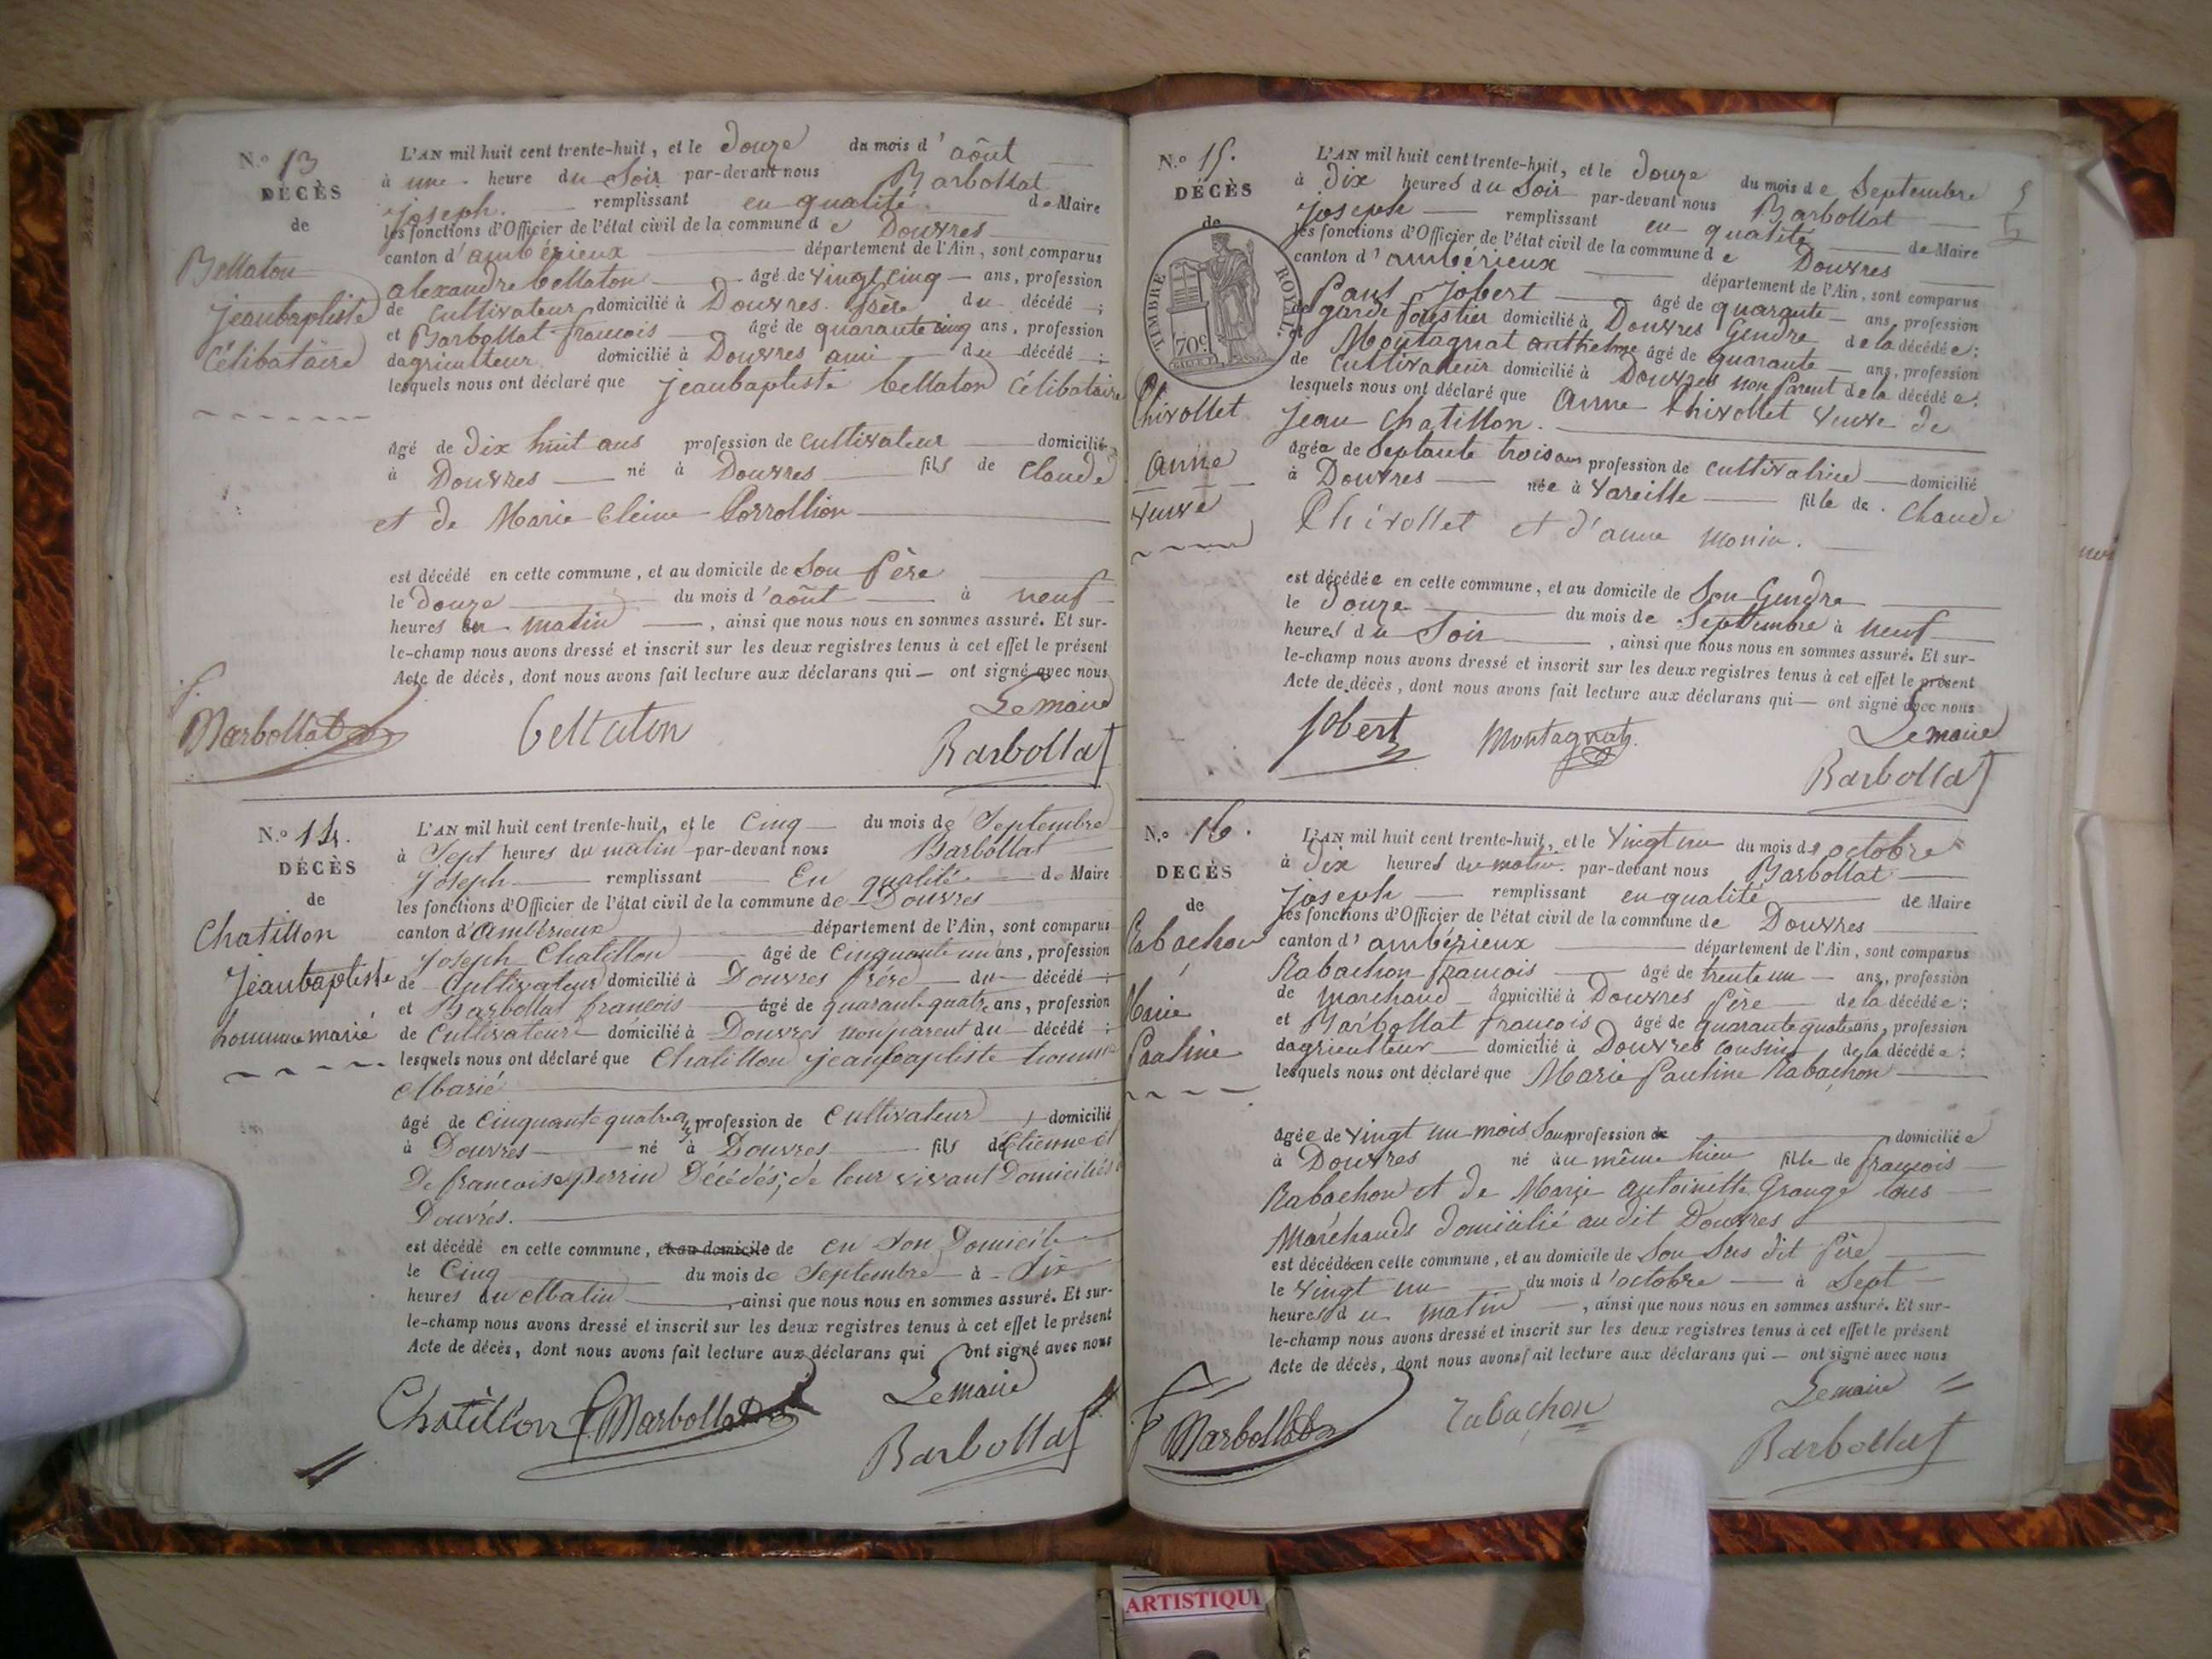 N.º 13
DÉCÈS
de
Bellaton
jeanbaptiste
Célibataire
L'AN mil huit cent trente-huit, et le Douze du mois d'aôut
à une heure du Soir par-devant nous Barbollat
joseph remplissant en qualité de Maire
les fonctions d'Officier de l'état civil de la commune de Douvres
canton d'ambérieux département de l'Ain, sont comparus
alexandre bellaton âgé de vingt cinq ans, profession
de Cultivateur domicilié à Douvres frère du décédé ;
et Barbollat francois âgé de quarante cinq ans, profession
dagriculteur domicilié à Douvres ami du décédé ;
lesquels nous ont déclaré que jeanbaptiste bellaton Célibataire
âgé de dix huit ans profession de cultivateur domicilié
à Douvres né à Douvres fils de Claude
et de Marie Cleime
est décédé en cette commune, et au domicile de Son Père
le Douze du mois d'aôut à neuf
heures du matin, ainsi que nous nous en sommes assuré. Et sur-
le-champ nous avons dressé et inscrit sur les deux registres tenus à cet effet le présent
Acte de décès, dont nous avons fait lecture aux déclarans qui — ont signé avec nous
Le maire
f. Barbollat bellaton Barbollat
N.º 14.
DÉCÈS
de
Chatillon
Jeanbaptiste
homme marié
L'AN mil huit cent trente-huit, et le Cinq du mois de Septembre
à Sept heures du matin par-devant nous Barbollat
joseph remplissant En qualité de Maire
les fonctions d'Officier de l'état civil de la commune de Douvres
canton d'ambérieux département de l'Ain, sont comparus
joseph Chatillon âgé de Cinquante un ans, profession
de Cultivateur domicilié à Douvres frère du décédé ;
et Barbollat francois âgé de quarante quatre ans, profession
de Cultivateur domicilié à Douvres non parent du décédé ;
lesquels nous ont déclaré que Chatillon jeanbaptiste homme
Marié
âgé de Cinquante quatre profession de Cultivateur domicilié
à Douvres né à Douvres fils de Etienne et
De francoise perrin Décédés, de leur vivant Domiciliés à
Douvrés.
est décédé en cette commune, et au domicile de en Son Domicile
le Cinq du mois de Septembre à Six
heures du Matin, ainsi que nous nous en sommes assuré. Et sur-
le-champ nous avons dressé et inscrit sur les deux registres tenus à cet effet le présent
Acte de décès, dont nous avons fait lecture aux déclarans qui ont signé avec nous
Le maire
Chatillon f. Barbollat Barbollat
N.º 15.
DÉCÈS
de
TIMBRE ROYAL.
70c
Thivollet
anne
veuve
L'AN mil huit cent trente-huit, et le Douze du mois de Septembre
à dix heures du Soir par-devant nous Barbollat
joseph remplissant en qualité de Maire
les fonctions d'Officier de l'état civil de la commune de Douvres
canton d'ambérieux département de l'Ain, sont comparus
Paul jobert âgé de quarante ans, profession
de garde forestier domicilié à Douvres Gendre de la décédée ;
et Montagnat anthelme âgé de quarante ans, profession
de cultivateur domicilié à Douvres non Parent de la décédée ;
lesquels nous ont déclaré que anne thivollet veuve de
jean Chatillon.
âgée de Septante trois ans profession de cultivatrice domicilié
à Douvres née à Vareille fille de Claude
Thivollet et d'anne monin.
est décédée en cette commune, et au domicile de Son Gendre
le Douze du mois de Septembre à neuf
heures du Soir, ainsi que nous nous en sommes assuré. Et sur-
le-champ nous avons dressé et inscrit sur les deux registres tenus à cet effet le présent
Acte de décès, dont nous avons fait lecture aux déclarans qui — ont signé avec nous
Le maire
jobert Montagnat Barbollat
N.º 16.
DÉCÈS
de
Rabachon
Marie
Pauline
L'AN mil huit cent trente-huit, et le Vingt un du mois de octobre
à dix heures du matin par-devant nous Barbollat
joseph remplissant en qualité de Maire
les fonctions d'Officier de l'état civil de la commune de Douvres
canton d'ambérieux département de l'Ain, sont comparus
Rabachon francois âgé de trente un ans, profession
de marchand domicilié à Douvres Père de la décédée ;
et Barbollat francois âgé de quarante quatre ans, profession
dagriculteur domicilié à Douvres cousin de la décédée ;
lesquels nous ont déclaré que Marie Pauline Rabachon
âgée de vingt un mois, Sans profession de domiciliée
à Douvres né au même lieu fille de francois
Rabachon et de Marie antoinette Grange tous
Marchands domicilié au dit Douvres
est décédée en cette commune, et au domicile de Son Sus dit Père
le Vingt un du mois d'octobre à Sept
heures du matin, ainsi que nous nous en sommes assuré. Et sur-
le-champ nous avons dressé et inscrit sur les deux registres tenus à cet effet le présent
Acte de décès, dont nous avons fait lecture aux déclarans qui — ont signé avec nous
Le maire
f. Barbollat rabachon Barbollat
ARTISTIQUE